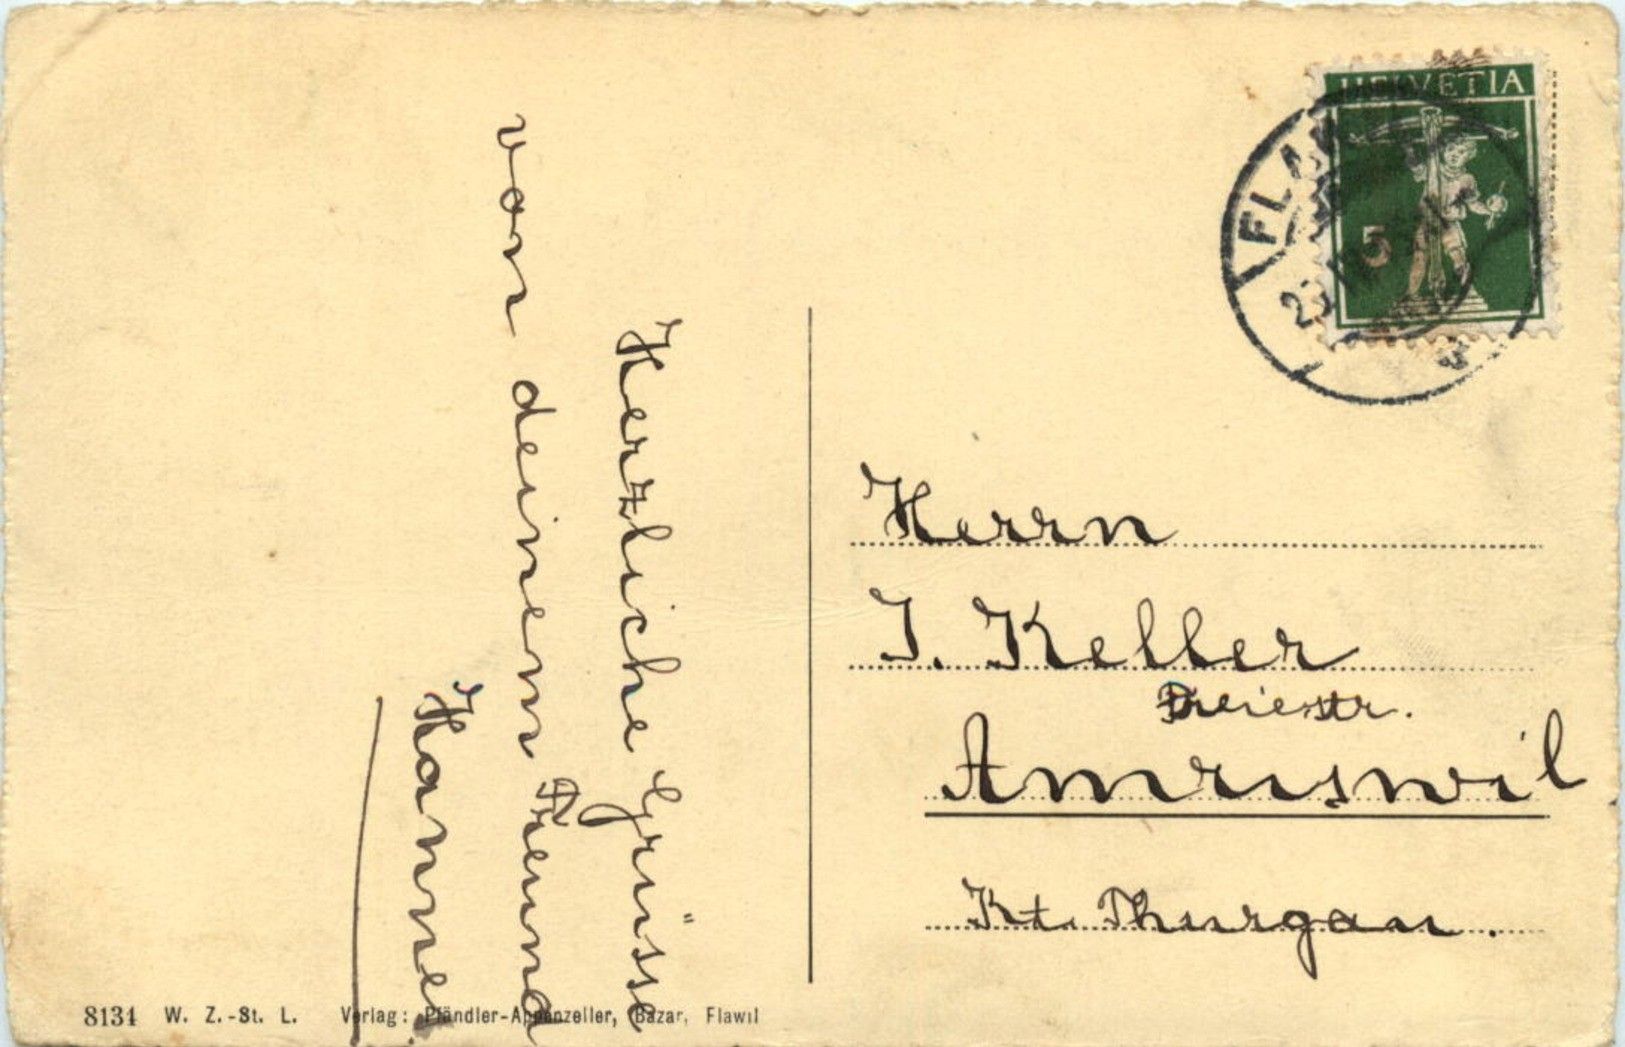 Herzliche Grüsse
von deinem Freund
Hannes
HELVETIA
5
FLAW
Herrn
J. Keller
Amriswil
Kt. Thurgau.
8134 W. Z.-St. L. Verlag: Pfändler-Appenzeller, Bazar, Flawil